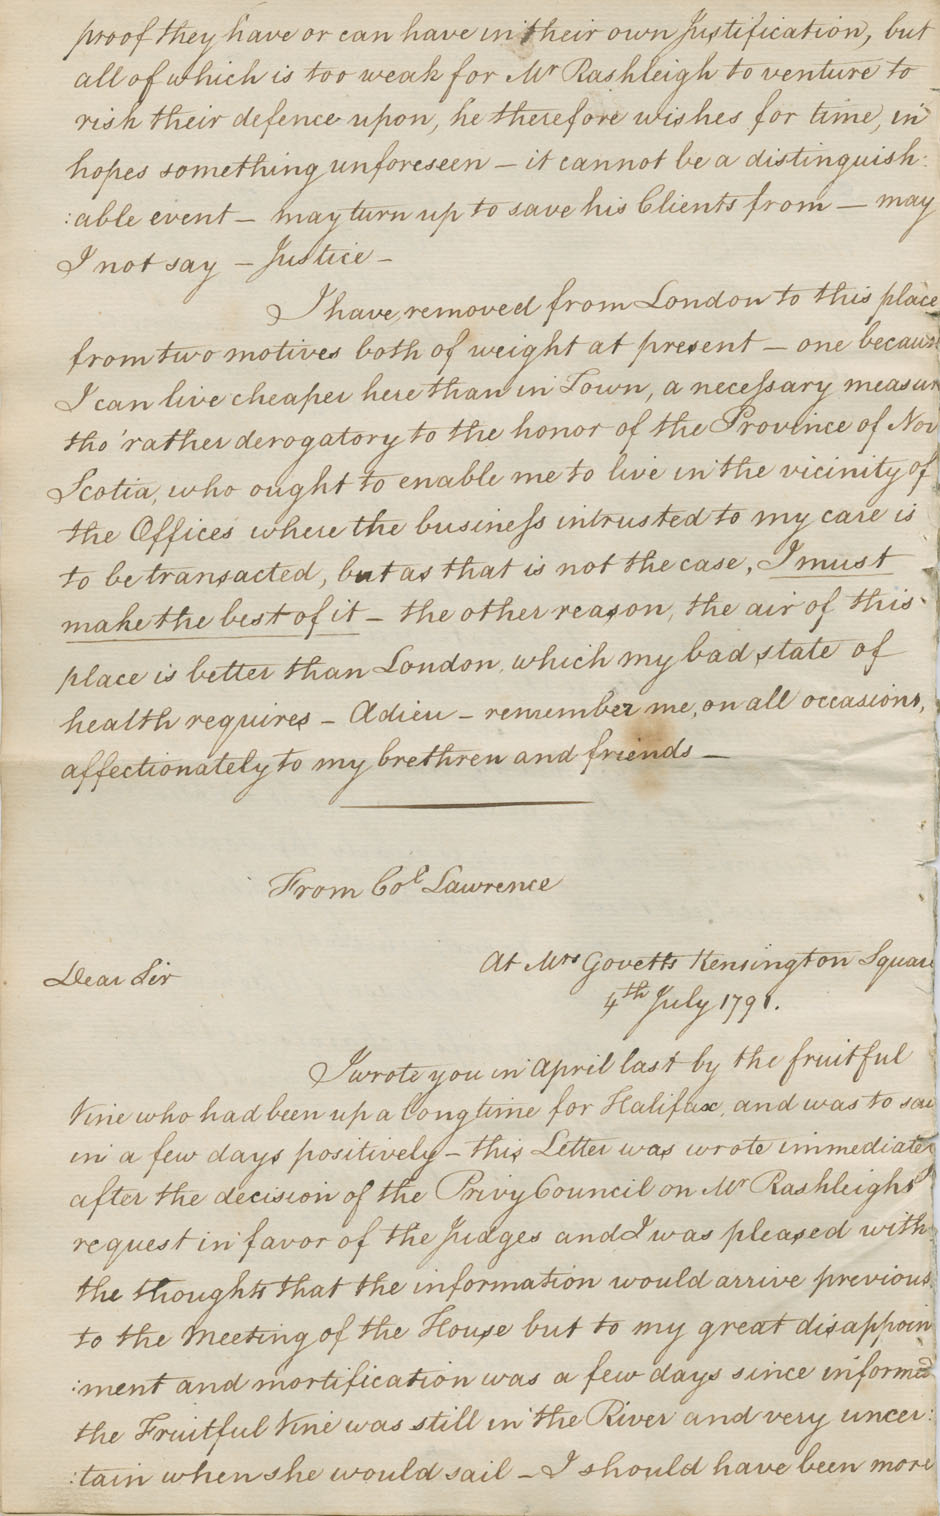 proof they have or can have in their own Justification, but
all of which is too weak for Mr Rashleigh to venture to
risk their defence upon, he therefore wishes for time, in
hopes something unforeseen – it cannot be a distinguish:
:able event – may turn up to save his Clients from – may
I not say – Justice –
I have removed from London to this place
from two motives both of weight at present – one because
I can live cheaper here than in Town, a necessary measur
tho' rather derogatory to the honor of the Province of Nov
Scotia, who ought to enable me to live in the vicinity of
the Offices where the business intrusted to my care is
to be transacted, but as that is not the case, I must
make the best of it – the other reason, the air of this
place is better than London, which my bad state of
health requires – Adieu – remember me, on all occasions,
affectionately to my brethren and friends –
From Col Lawrence
At Mrs Govetts Kensington Square
Dear Sir
4th July 1791.
I wrote you in April last by the fruitful
Vine who had been up a long time for Halifax, and was to sail
in a few days positively – this Letter was wrote immediately
after the decision of the Privy Council on Mr Rashleighs
request in favor of the Judges and I was pleased with
the thoughts that the information would arrive previous
to the Meeting of the House but to my great disappoin
:ment and mortification was a few days since informed
the Fruitful Vine was still in the River and very uncer:
:tain when she would sail – I should have been more